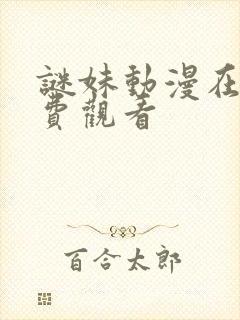 謎妹動漫在
費觀看
百合太郎